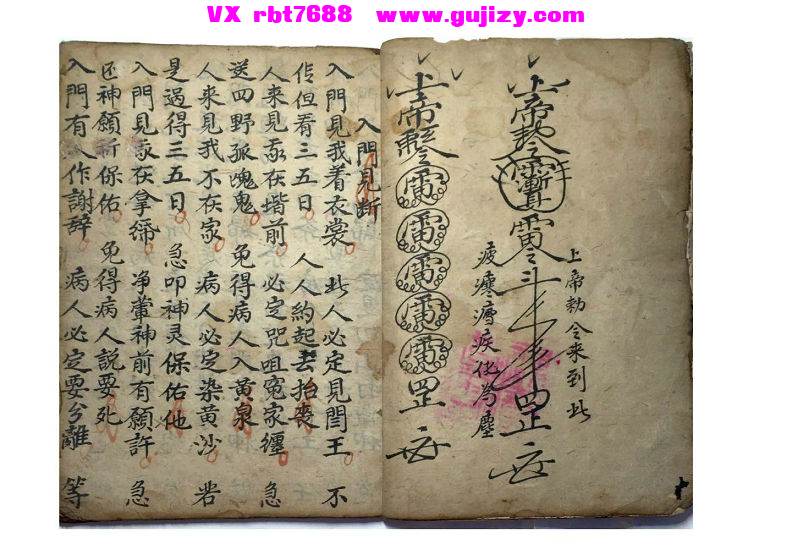 VX rbt7688  www.gujizy.com
上帝敕令
上帝勅令来到此
疲瘝癆疾化为塵
上帝
雷
雷
雷
雷
雷
罡
入門見断
入門見我着衣裳 此人必定見閻王 不
信但看三五日 人人約起去抬喪
人来見我在堦前 必定咒咀寃家纒 急
送四野孤魄鬼 免得病人入黄泉
人来見我不在家 病人必定染黄沙 若
是過得三五日 急叩神灵保佑他
入門見我在拿 净葷神前有願許 急
还神願祈保佑 免得病人説要死
入門有人作謝辞 病人必定要分離 等